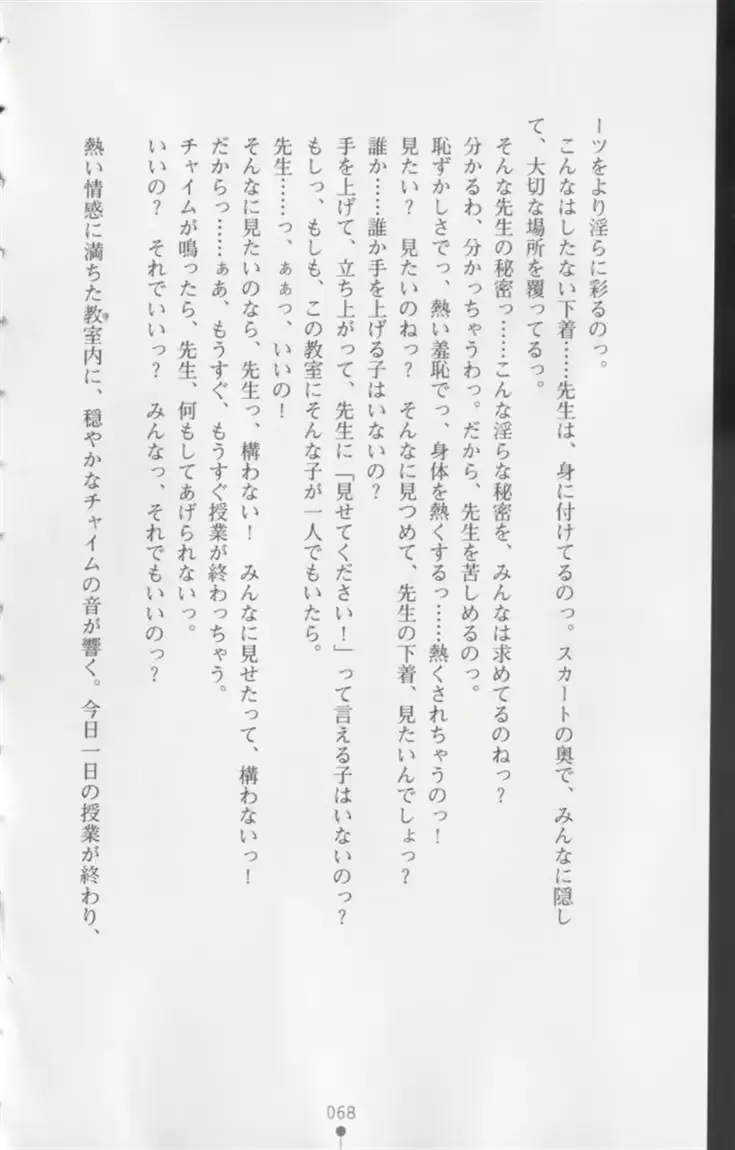 ーツをより淫らに彩るのっ。
こんなはしたない下着……先生は、身に付けてるのっ。スカートの奥で、みんなに隠し
て、大切な場所を覆ってるっ。
そんな先生の秘密っ……こんな淫らな秘密を、みんなは求めてるのねっ？
分かるわ、分かっちゃうわっ。だから、先生を苦しめるのっ。
恥ずかしさでっ、熱い羞恥でっ、身体を熱くするっ……熱くされちゃうのっ！
見たい？　見たいのねっ？　そんなに見つめて、先生の下着、見たいんでしょっ？
誰か……誰か手を上げる子はいないの？
手を上げて、立ち上がって、先生に「見せてください！」って言える子はいないのっ？
もしっ、もしも、この教室にそんな子が一人でもいたら。
先生……っ、ぁぁっ、いいの！
そんなに見たいのなら、先生っ、構わない！　みんなに見せたって、構わないっ！
だからっ……ぁあ、もうすぐ、もうすぐ授業が終わっちゃう。
チャイムが鳴ったら、先生、何もしてあげられないっ。
いいの？　それでいいっ？　みんなっ、それでもいいのっ？
熱い情感に満ちた教室内に、穏やかなチャイムの音が響く。今日一日の授業が終わり、
068